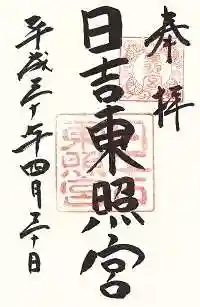 奉拝
日吉東照宮
平成三十年四月三十日